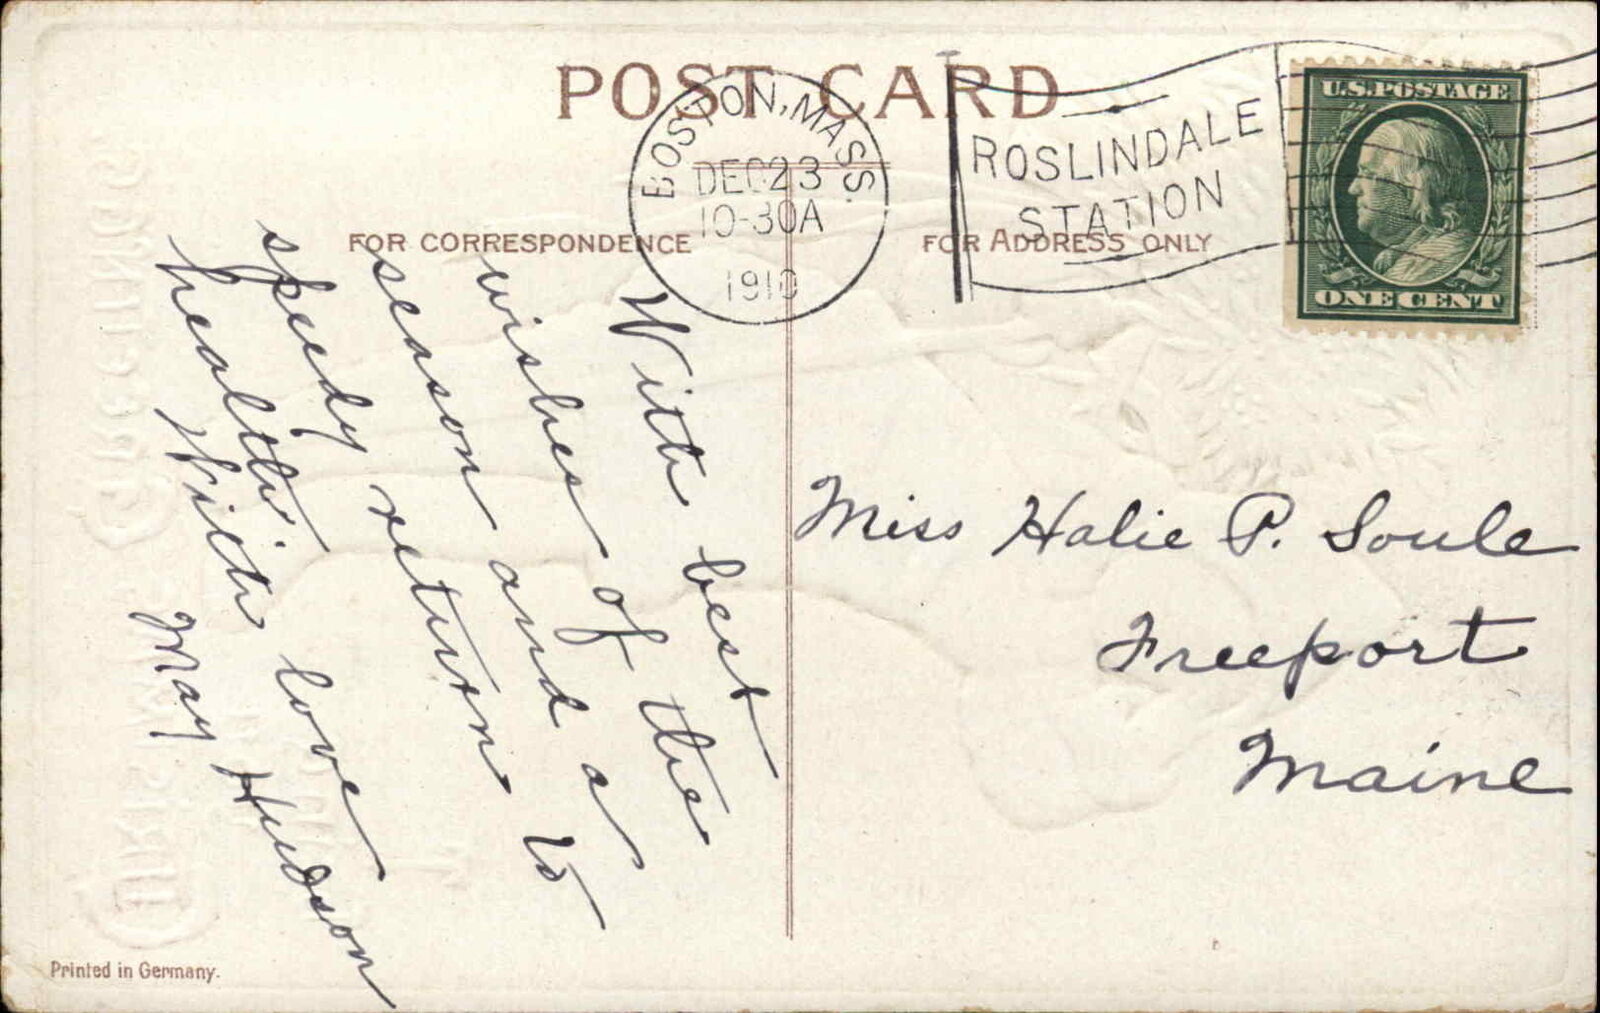 POST CARD
BOSTON, MASS.
DEC 23
10-30A
1910
ROSLINDALE
STATION
U.S. POSTAGE
ONE CENT
FOR CORRESPONDENCE
FOR ADDRESS ONLY
With best
wishes of the
season and a
speedy return to
health
With love
May Hudson
Miss Halie P. Soule
Freeport
Maine
Printed in Germany.